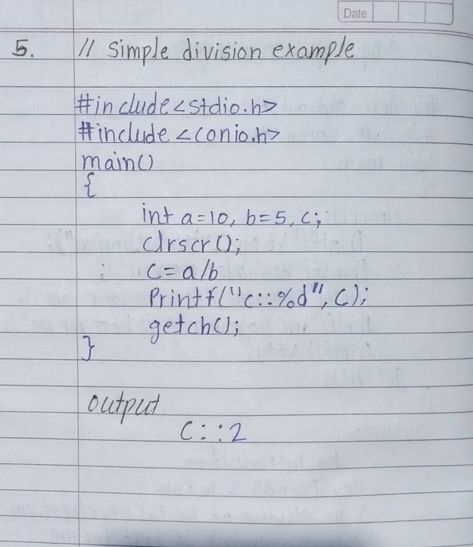 Date
5. // Simple division example
#include<stdio.h>
#include <conio.h>
main()
{
int a=10, b=5, c;
clrscr();
c= a/b
Printf("c::%d", c);
getch();
}
output
c::2